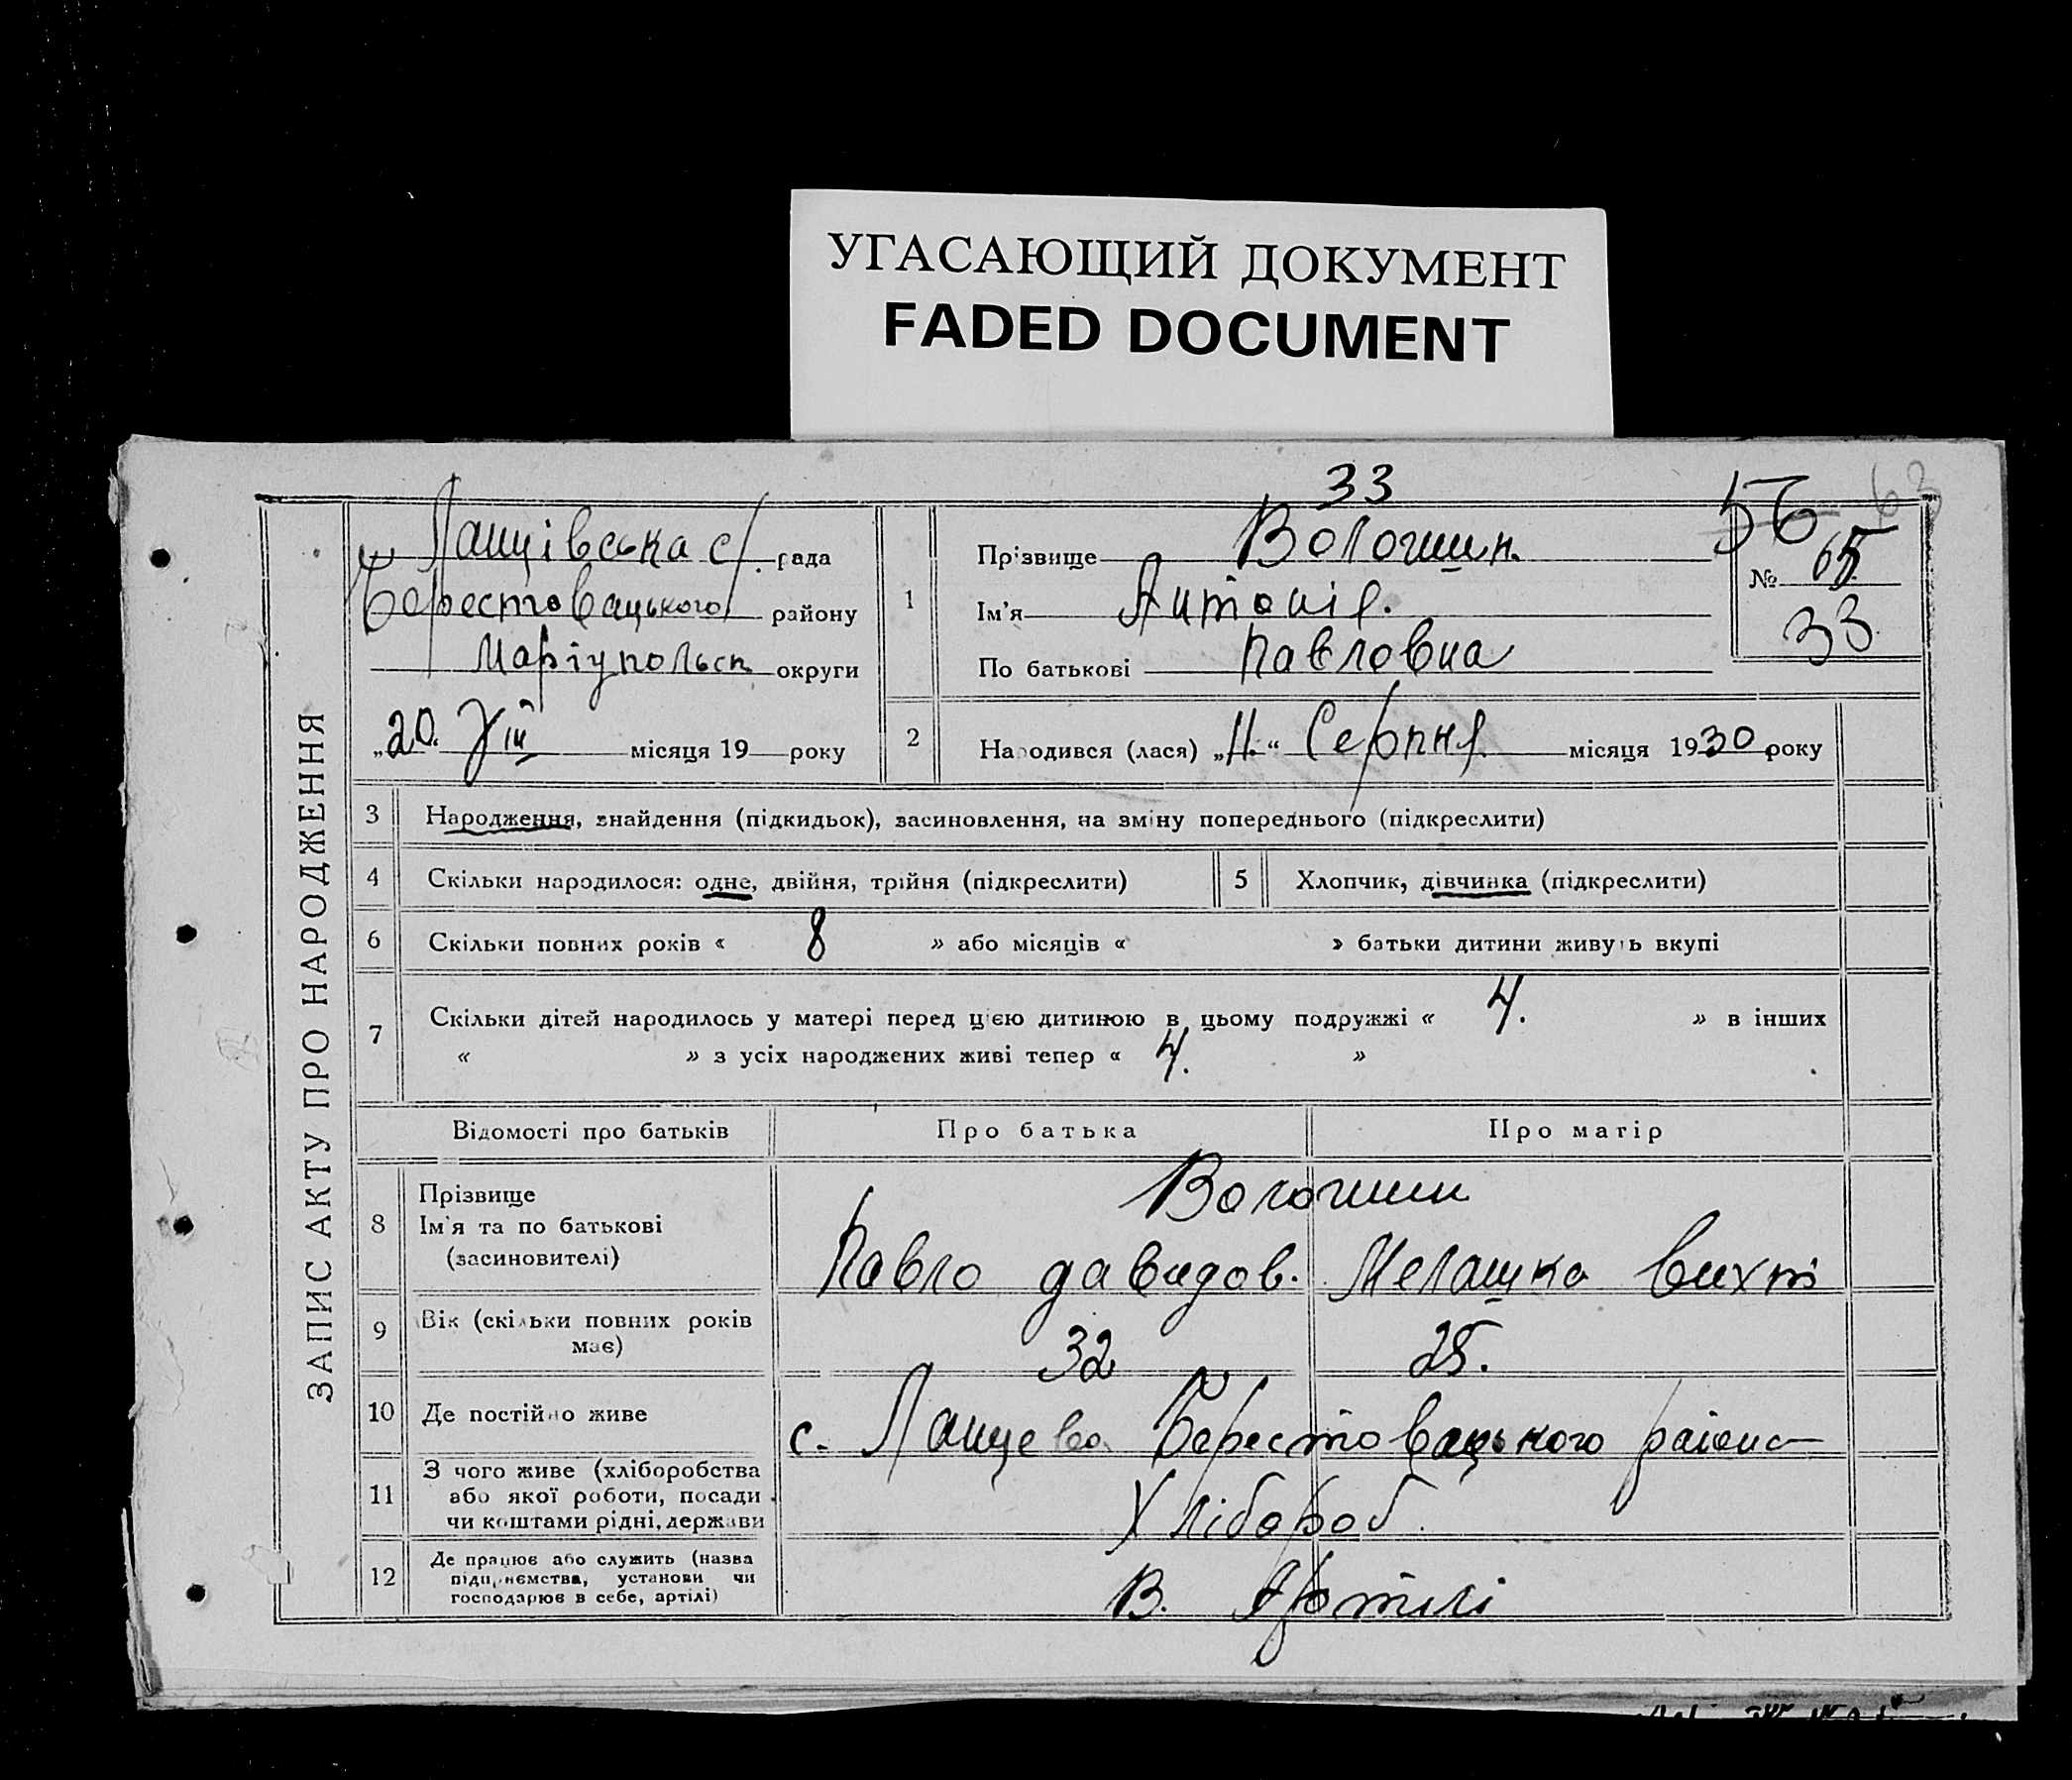 УГАСАЮЩИЙ ДОКУМЕНТ
FADED DOCUMENT
33
56
63
ЗАПИС АКТУ ПРО НАРОДЖЕННЯ
Ланцівська с/. рада
Берестовацького району
Маріупольск округи
„20. VIII місяця 19 року
1
Прізвище Волошин.
Ім'я Антонія.
По батькові Павловна
№ 65
33
2 Народився (лася) „11.“ Серпня місяця 1930 року
3 Народження, знайдення (підкидьок), засиновлення, на зміну попереднього (підкреслити)
4 Скільки народилося: одне, двійня, трійня (підкреслити)
5 Хлопчик, дівчинка (підкреслити)
6 Скільки повних років « 8 » або місяців « » батьки дитини живуть вкупі
7 Скільки дітей народилось у матері перед цією дитиною в цьому подружжі « 4. » в інших
« » з усіх народжених живі тепер « 4. »
Відомості про батьків Про батька Про матір
8 Прізвище
Ім'я та по батькові
(засиновителі)
Волошин
Павло давидов. Мелашка
9 Вік (скільки повних років
має)
32 25.
10 Де постійно живе
с. Ланцева Берестовацького раіона
11 З чого живе (хліборобства
або якої роботи, посади
чи коштами рідні, держави
Хлібороб.
12 Де працює або служить (назва
підприємства, установи чи
господарює в себе, артілі)
В. Артілі